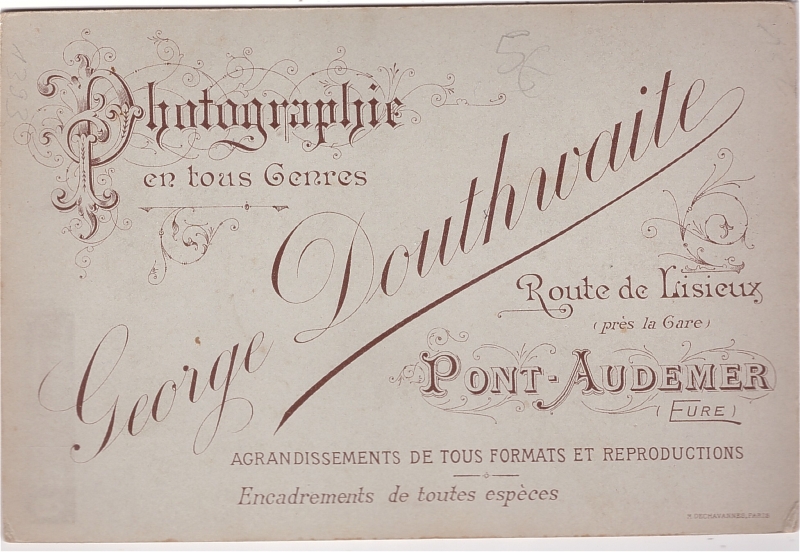 Photographie
en tous Genres
George Douthwaite
Route de Lisieux
(près la Gare)
PONT-AUDEMER
(EURE)
AGRANDISSEMENTS DE TOUS FORMATS ET REPRODUCTIONS
Encadrements de toutes espèces